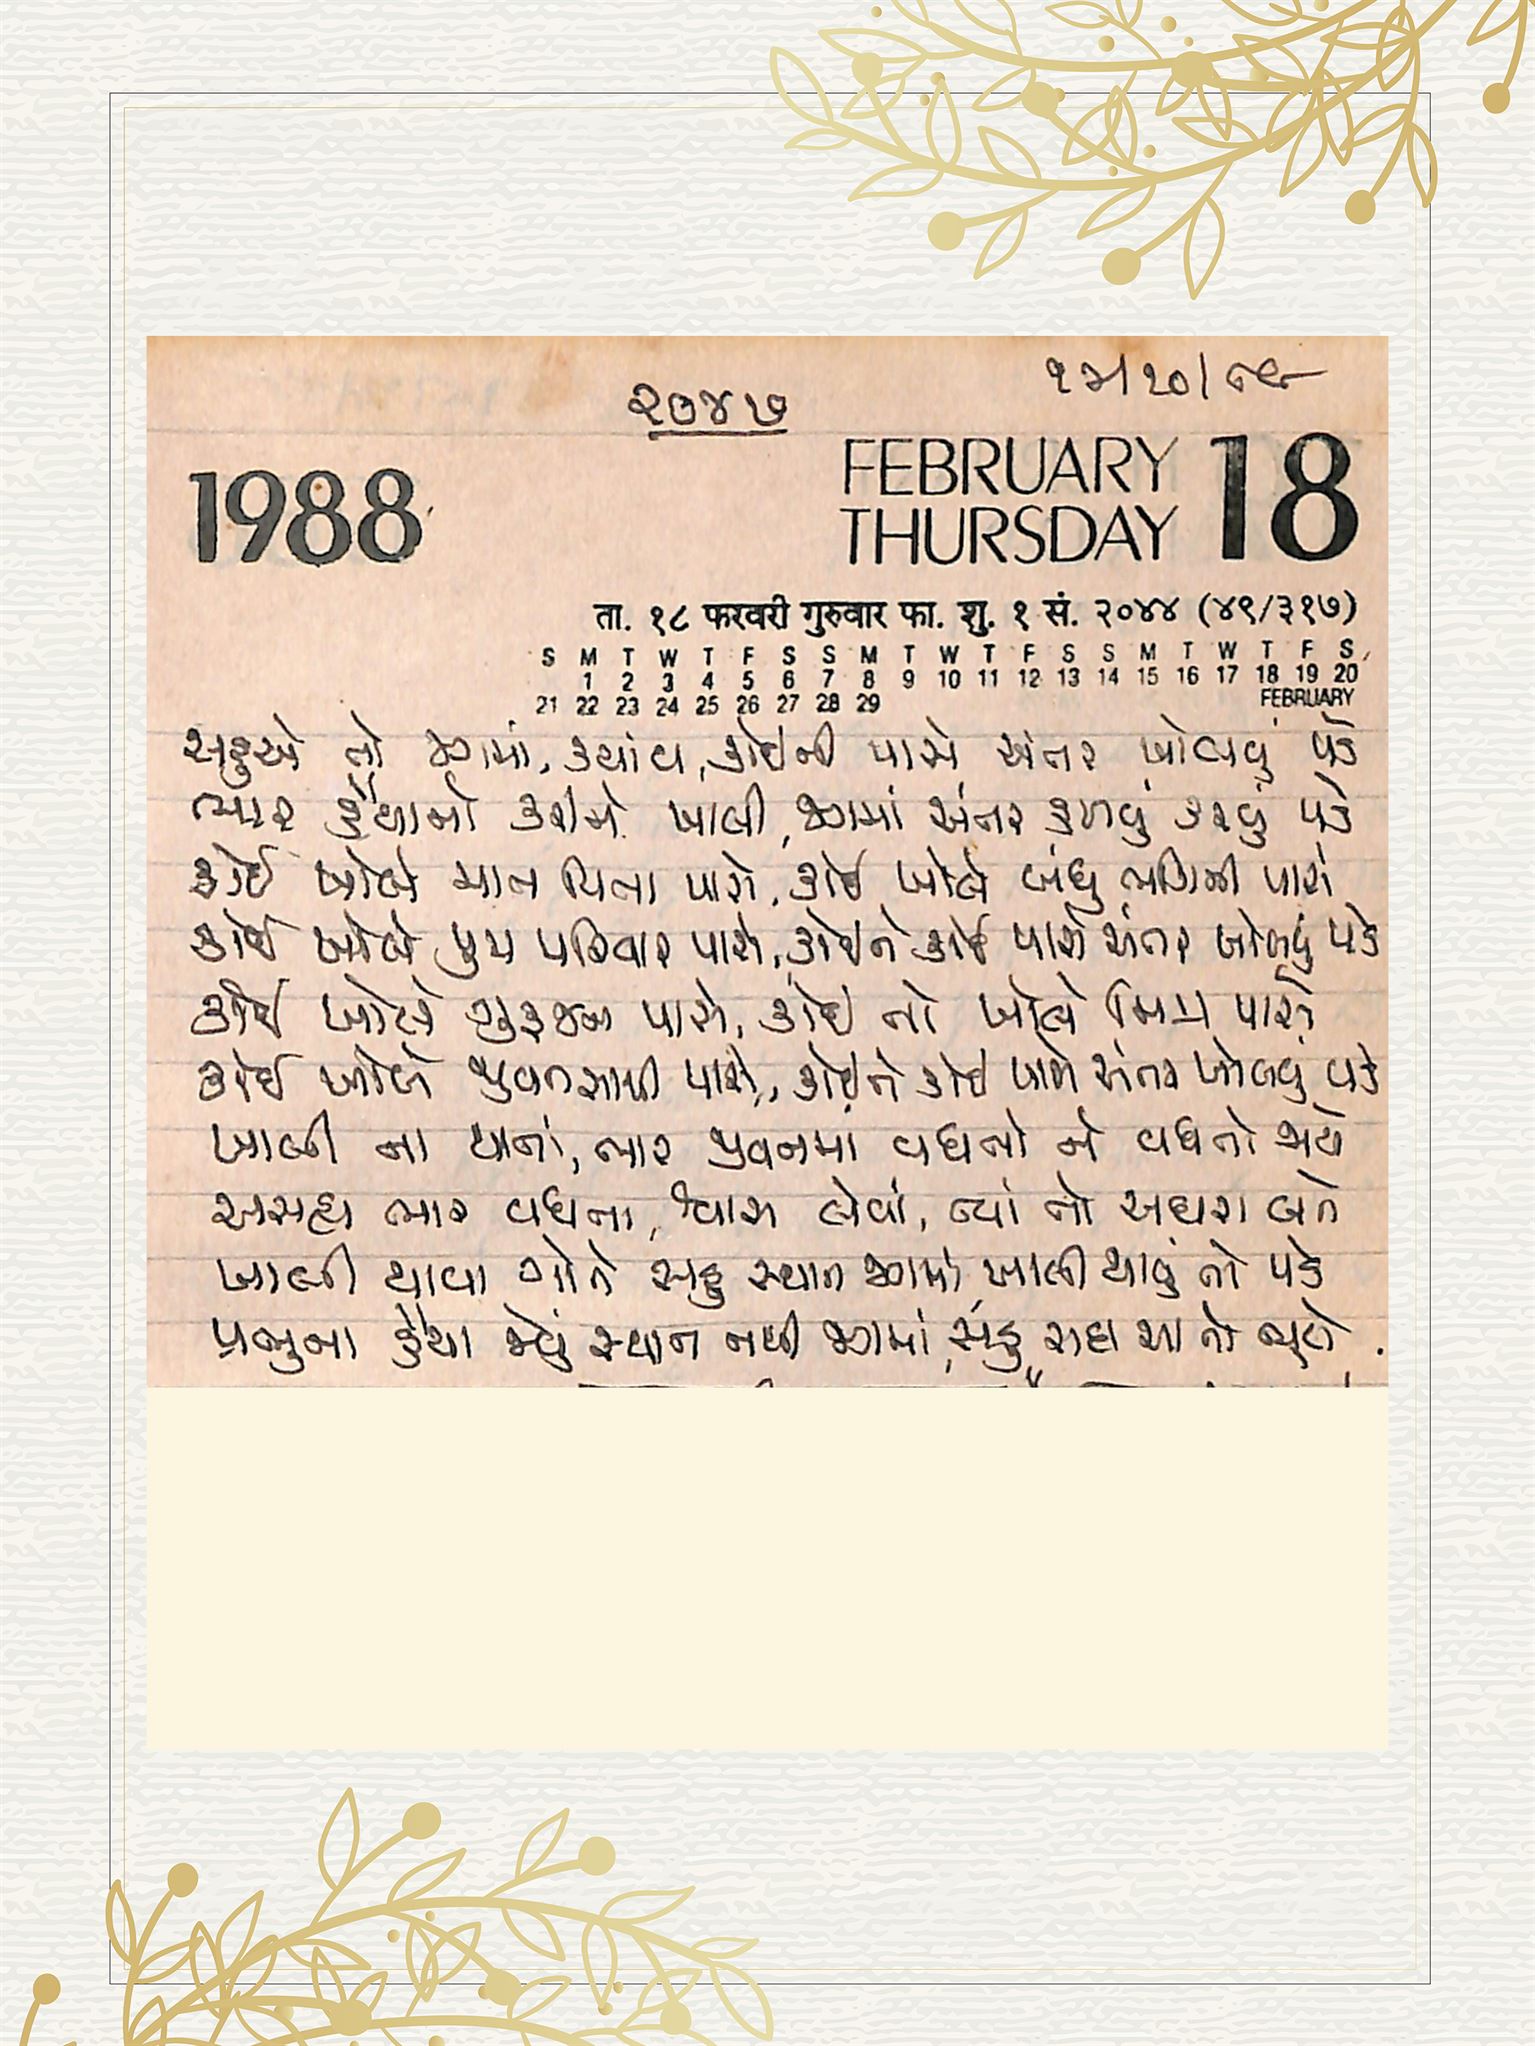 ૨૦૪૭
1988
FEBRUARY 18
THURSDAY
ता. १८ फरवरी गुरुवार फा. शु. १ सं. २०४४ (४९/३१७)
S M T W T F S S M T W T F S S M T W T F S
1 2 3 4 5 6 7 8 9 10 11 12 13 14 15 16 17 18 19 20
21 22 23 24 25 26 27 28 29 FEBRUARY
સહુએ તો જગમાં, ક્યાંય, કોઈની પાસે અંતર ખોલવું પડે
ભાર હૈયાનો કરીને ખાલી, જગમાં અંતર હળવું કરવું પડે
કોઈ ખોલે માત પિતા પાસે, કોઈ ખોલે બંધુ ભગિની પાસે
કોઈ ખોલે પુત્ર પરિવાર પાસે, કોઈને કોઈ પાસે અંતર ખોલવું પડે
કોઈ ખોલે ગુરુજન પાસે, કોઈ તો ખોલે મિત્ર પાસે
કોઈ ખોલે જીવનસાથી પાસે, કોઈને કોઈ પાસે અંતર ખોલવું પડે
ખાલી ના થાતાં, ભાર જીવનમાં વધતો ને વધતો જાયે
અસહ્ય ભાર વધતા, શ્વાસ લેવાં, ત્યાં તો અઘરા બને
ખાલી થાવા ગોતે સહુ સ્થાન જગમાં, ખાલી થાવું તો પડે
પ્રભુના હૈયા જેવું સ્થાન નથી જગમાં, સહુ સદા આ તો ભૂલે